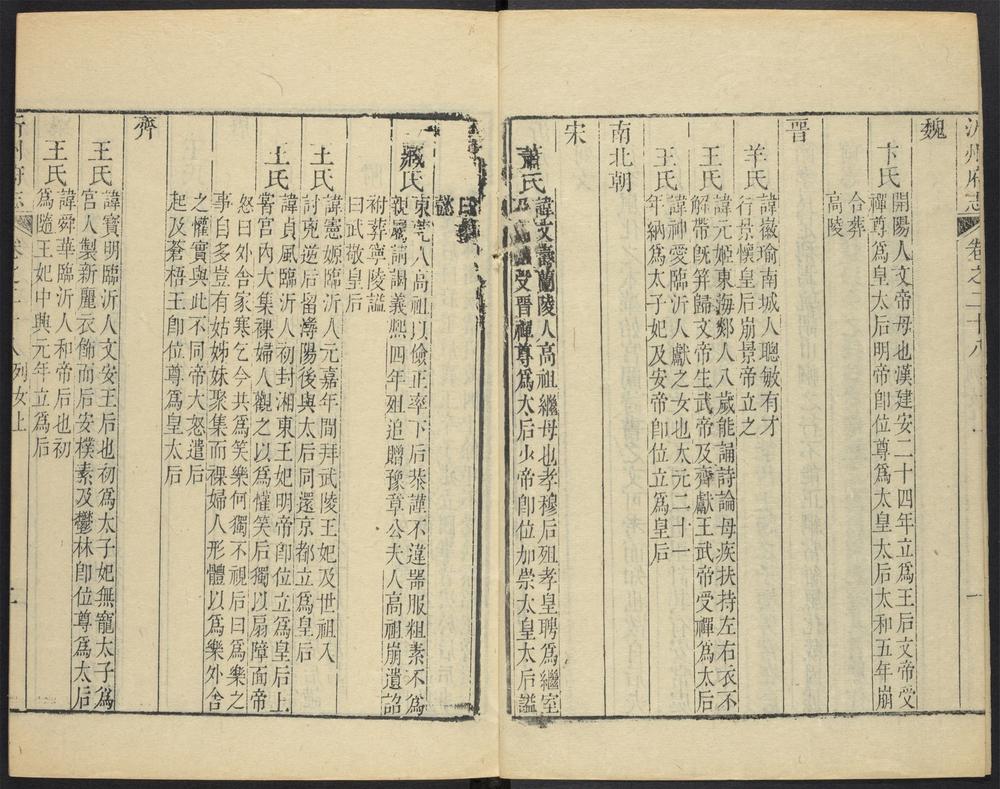 沂州府志 卷之二十八 一
魏
卞氏 開陽人文帝母也漢建安二十四年立爲王后文帝受
禪尊爲皇太后明帝卽位尊爲太皇太后太和五年崩
合葬
高陵
晉
羊氏 諱徽瑜南城人聰敏有才
行景懷皇后崩景帝立之
王氏 諱元姬東海郯人八歲能誦詩論母疾扶持左右衣不
解帶旣笄歸文帝生武帝及齊獻王武帝受禪爲太后
王氏 諱神愛臨沂人獻之女也太元二十一
年納爲太子妃及安帝卽位立爲皇后
南北朝
宋
蕭氏 諱文壽蘭陵人高祖繼母也孝穆后殂孝皇聘爲繼室
及 受晉禪尊爲太后少帝卽位加崇太皇太后諡
懿
臧氏 東莞人高祖以儉正率下后恭謹不違器服粗素不爲
親屬請謁義熙四年殂追贈豫章公夫人高祖崩遺詔
祔葬寧陵諡
曰武敬皇后
王氏 諱憲嫄臨沂人元嘉年間拜武陵王妃及世祖入
討兇逆后留潯陽後與太后同還京都立爲皇后
王氏 諱貞風臨沂人初封湘東王妃明帝卽位立爲皇后上
嘗宮內大集裸婦人觀之以爲懽笑后獨以扇障面帝
怒曰外舍家寒乞今共爲笑樂何獨不視后曰爲樂之
事自多豈有姑姊妹聚集而裸婦人形體以爲樂外舍
之懽實與此不同帝大怒遣后
起及蒼梧王卽位尊爲皇太后
齊
王氏 諱寶明臨沂人文安王后也初爲太子妃無寵太子爲
宮人製新麗衣飾而后安樸素及鬱林卽位尊爲太后
王氏 諱舜華臨沂人和帝后也初
爲隨王妃中興元年立爲后
沂州府志 卷之二十八 列女上 二